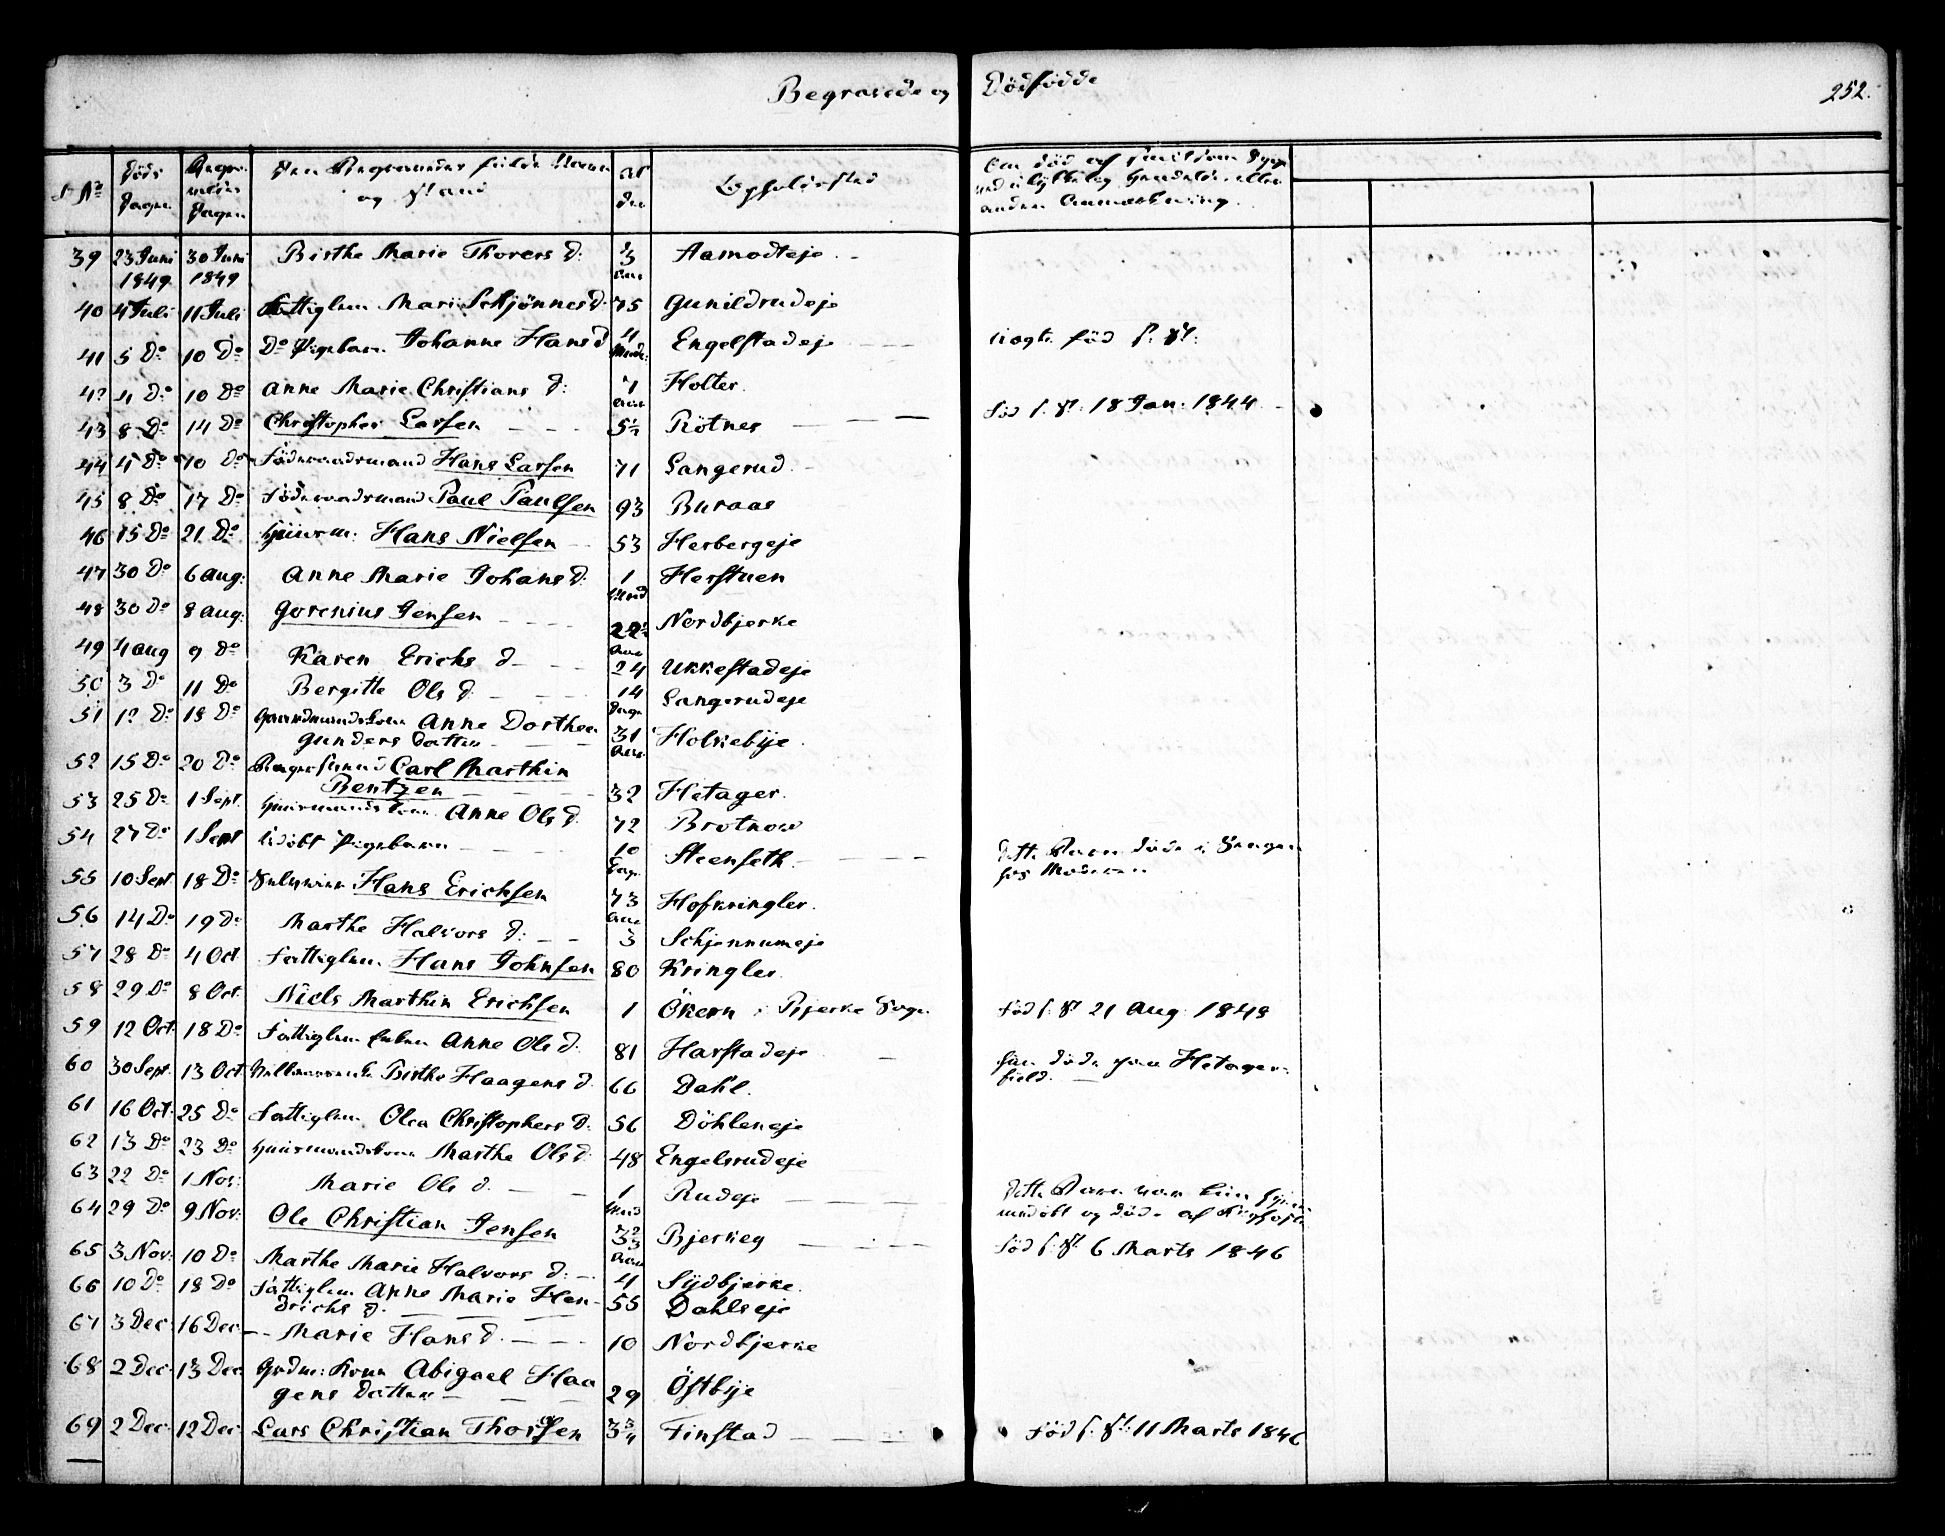 Begravede og Dödfödde 252.
No Döds Dagen Begra- velses Dagen Den Begravedes fulde Navn og Stand Al der Opholdssted
anden Anmærkning.
39 23 Juni 1849 30 Juni 1849 Birthe Marie Thorers d: 3 Aamodteje
40 4 Juli 11 Juli Fattiglem Mari Schjönnes d: 75 Gunildrudeje
41 5 Do 10 Do Do Pigebarn Johanne Hans d 4 Engelstadeje föd f. St:
42 4 Do 10 Do Anne Marie Christians d: Holter
43 8 Do 14 Do Christopher Larsen 5½ Rötnes föd f. St: 18 Jan: 1844
44 4 Do 10 Do Föderaadsmand Hans Larsen 71 Langerud
45 8 Do 17 Do Föderaadsmand Paul Paulsen 93 Buraas
46 15 Do 21 Do Huusm: Hans Nielsen 53 Herbergeje
47 30 Do 6 Aug: Anne Marie Johans d: 1 Herstuen
48 30 Do 8 Aug: Gorenius Jensen Nordbjerke
49 4 Aug 9 Do Karen Erichs d 24 Ukkestadeje
50 3 Do 11 Do Bergitte Ols d 14 Dage Langerudeje
51 12 Do 18 Do Gaardmandskone Anne Dorthea
Gunders Datter 31 Aar Holkebÿe
52 15 Do 20 Do Carl Marthin
Bentzen 32 Hetager
53 25 Do 1 Sept. Huusmands Kone Anne Ols d 72 Brotnow
54 27 Do 1 Sept Udöbt Pigebarn 10 Steenseth Dette Barn döde i Sengen
hos Moderen
55 10 Sept 18 Do Hans Erichsen 73 Hofkringler
56 14 Do 19 Do Marthe Halvors d: 3 Schjennumeje
57 28 Do 4 Oct Fattiglem Hans Johnsen 80 Kringler
58 29 Do 8 Oct. Niels Marthin Erichsen 1 Ökern i Bjerke Sogn föd f. St 21 Aug 1848
59 12 Oct. 18 Do Fattiglem Enken Anne Ols d 81 Harstadeje
60 30 Sept. 13 Oct Birthe Haagens d. 66 Dahl. hun döde paa Hetager-
field.
61 16 Oct. 25 Do Fattiglem Olea Christophers d. 56 Döhleneje
62 13 Do 23 Do Huusmandskone Marthe Ols d 48 Engelsrudeje
63 22 Do 1 Nov: Marie Ols d. 1 Rudeje Dette Barn var kun hjem-
medöbt og döde af
64 29 Do 9 Nov: Ole Christian Jensen Bjerkeg föd f. St. 6 Marts 1846
65 3 Nov: 10 Do Marthe Marie Halvors d: 4 Sÿdbjerke
66 10 Do 18 Do Fattiglem Anne Marie Hen-
drichs d. 55 Dahlseje
67 3 Dec. 16 Dec. Marie Hans d. 10 Nordbjerke
68 2 Dec. 13 Dec Grdm: Kone Abigael Haa
gens Datter 29 Östbÿe
69 2 Dec. 12 Dec. Lars Christian Thorsen 3¾ Finstad Föd f. St: 11 Marts 1846